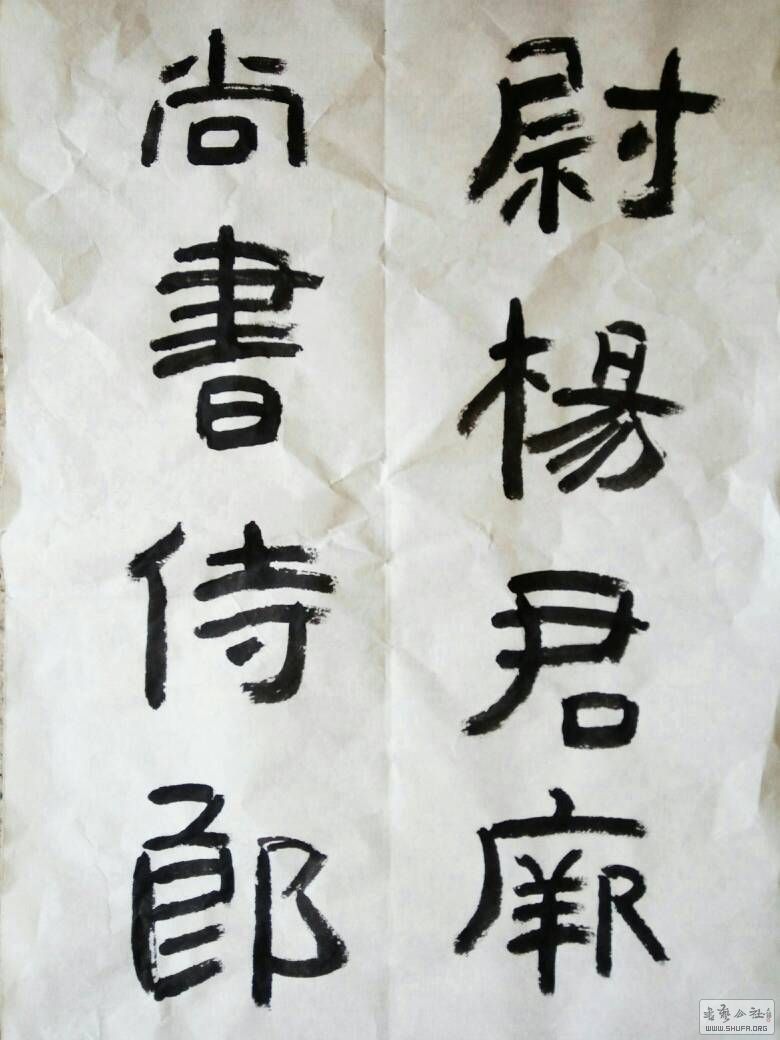 尉楊君厥
尚書侍郎
書藝公社
WWW.SHUFA.ORG